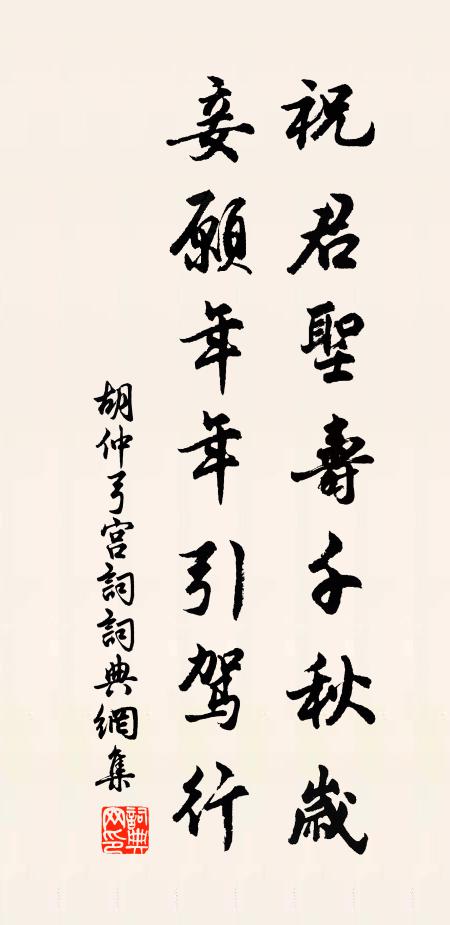 祝君聖壽千秋歲
妾願年年引駕行
胡仲弓宮詞詞典網集
詞典网印